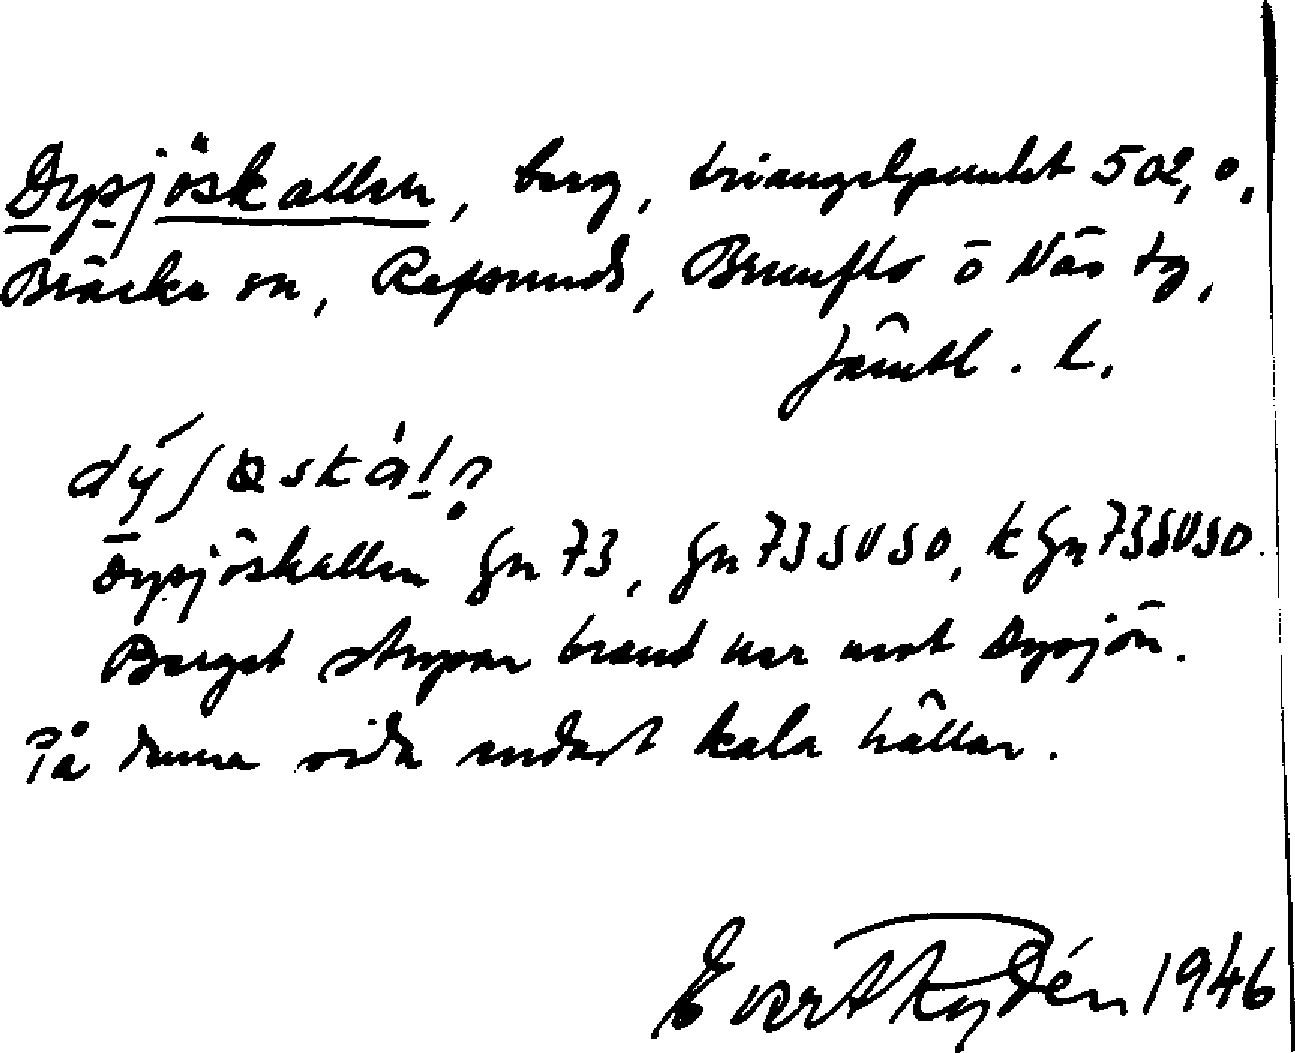 Dysjöskallen, berg, triangelpunkt 502,0,
Bräcke sn, Refsunds, Brunflo o Näs tg,
Jämtl. l.
dýsjøskál?
Dysjöskallen Gn 73, Gn 73 SV SO, k Gn 73 SV SO.
Berget stupar brant ner mot Dysjön.
På denna sida endast kala hällar.
Evert Rydén 1946